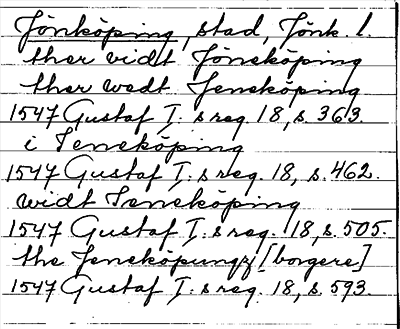 Jönköping, stad, Jönk. l.
ther vidt Jöneköping
ther wedt Jeneköping
1547 Gustaf I:s reg. 18, s. 363.
i Jeneköping
1547 Gustaf I:s reg. 18, s. 462.
widt Jeneköping
1547 Gustaf I:s reg. 18, s. 505.
the Jeneköpungz [borgere]
1547 Gustaf I:s reg. 18, s. 593.